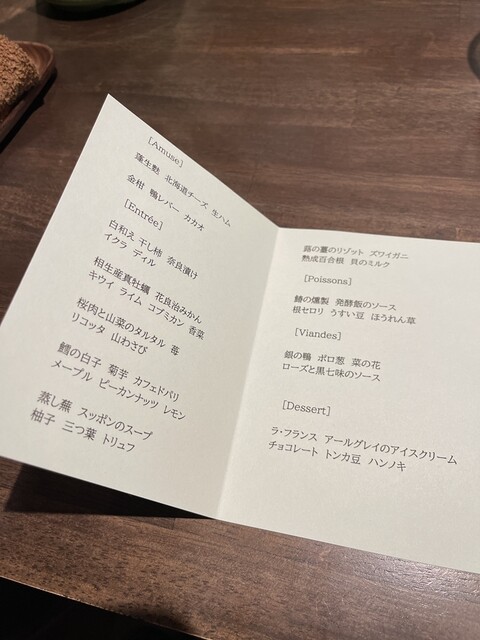 [Amuse]
蓬生麩 北海道チーズ 生ハム
金柑 鴨レバー カカオ
[Entrée]
白和え 干し柿 奈良漬け
イクラ ディル
相生産真牡蠣 花良治みかん
キウイ ライム コブミカン 香菜
桜肉と山菜のタルタル 苺
リコッタ 山わさび
鱈の白子 菊芋 カフェドパリ
メープル ピーカンナッツ レモン
蒸し蕪 スッポンのスープ
柚子 三つ葉 トリュフ
蕗の薹のリゾット ズワイガニ
熟成百合根 貝のミルク
[Poissons]
鰆の燻製 発酵飯のソース
根セロリ うすい豆 ほうれん草
[Viandes]
銀の鴨 ポロ葱 菜の花
ローズと黒七味のソース
[Dessert]
ラ・フランス アールグレイのアイスクリーム
チョコレート トンカ豆 ハンノキ